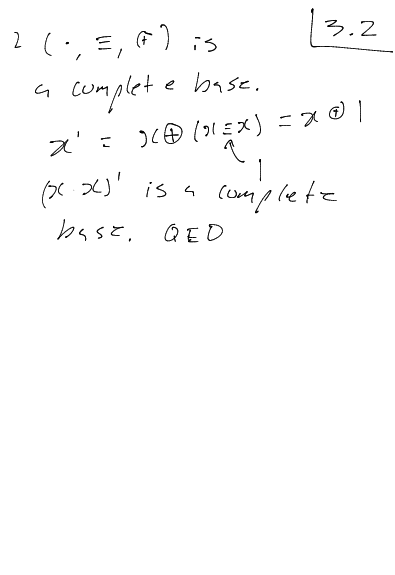 3.2
2 (·, ≡, ⊕) is
a complete base.
x' = x ⊕ (x ≡ x) = x ⊕ 1
1
(x · x)' is a complete
base. QED